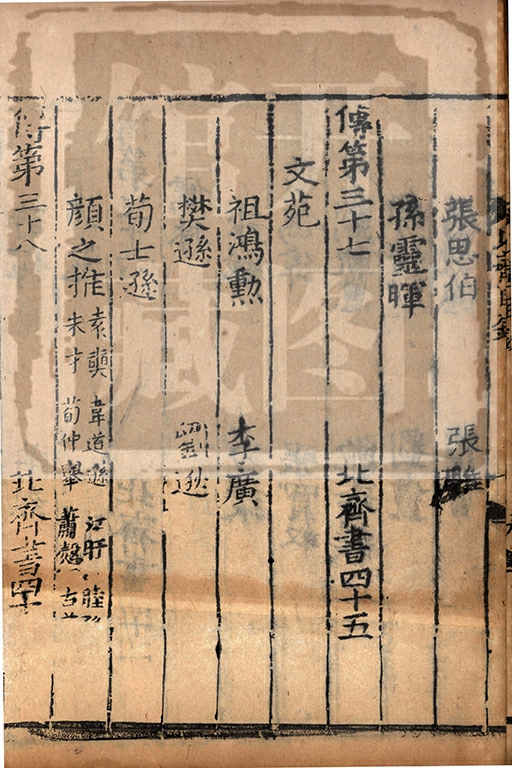 張思伯 張雕
孫靈暉
傳第三十七 北齊書四十五
文苑
祖鴻勳 李廣
樊遜 劉逖
荀士遜
顏之推 袁奭 韋道遜 江旰 睦
朱才 荀仲舉 蕭慤 古
傳第三十八 北齊書四十